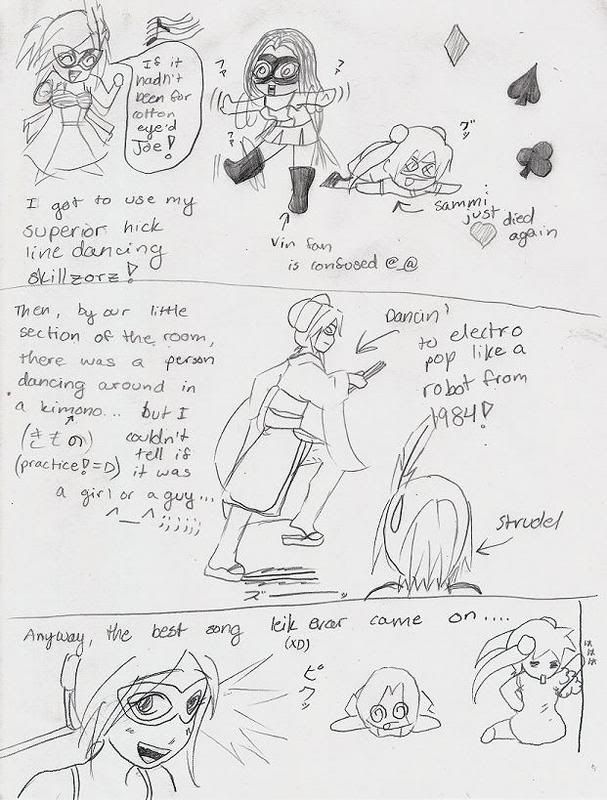 If it
hadn't
been for
cotton
eye'd
Joe!
ファ
ファ
ファ
グッ
I got to use my
superior hick
line dancing
skillzorz!
Vin fan
is confused @_@
sammi
just died
again
Then, by our little
section of the room,
there was a person
dancing around in
a kimono... but I
(きもの) couldn't
(practice! =D) tell if
it was
a girl or a guy...
^__^;;;;;
Dancin'
to electro
pop like a
robot from
1984!
strudel
ズーーーッ
Anyway, the best song leik evar came on....
(XD)
ピクッ